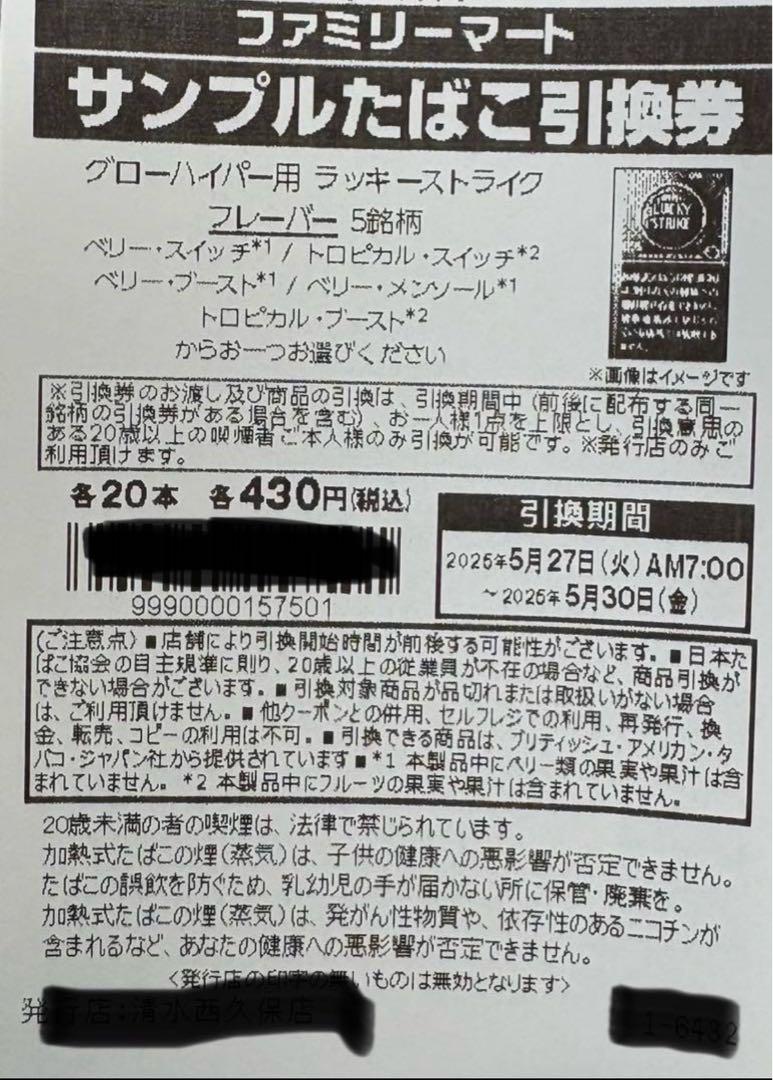 ファミリーマート
サンプルたばこ引換券
グローハイパー用 ラッキーストライク
フレーバー 5銘柄
ベリー・スイッチ*1 / トロピカル・スイッチ*2
ベリー・ブースト*1 / ベリー・メンソール*1
トロピカル・ブースト*2
からお一つお選びください
LUCKY
STRIKE
※画像はイメージです
※引換券のお渡し及び商品の引換は、引換期間中(前後に配布する同一
銘柄の引換券がある場合を含む)、お一人様1点を上限とし、引換意思の
ある20歳以上の喫煙者ご本人様のみ引換が可能です。※発行店のみご
利用頂けます。
各20本 各430円(税込)
9990000157501
引換期間
2025年5月27日(火)AM7:00
~2025年5月30日(金)
(ご注意点)■店舗により引換開始時間が前後する可能性がございます。■日本た
ばこ協会の自主規準に則り、20歳以上の従業員が不在の場合など、商品引換が
できない場合がございます。■引換対象商品が品切れまたは取扱いがない場合
は、ご利用頂けません。■他クーポンとの併用、セルフレジでの利用、再発行、換
金、転売、コピーの利用は不可。■引換できる商品は、ブリティッシュ・アメリカン・タ
バコ・ジャパン社から提供されています■*1 本製品中にベリー類の果実や果汁は含
まれていません。*2 本製品中にフルーツの果実や果汁は含まれていません。
20歳未満の者の喫煙は、法律で禁じられています。
加熱式たばこの煙(蒸気)は、子供の健康への悪影響が否定できません。
たばこの誤飲を防ぐため、乳幼児の手が届かない所に保管・廃棄を。
加熱式たばこの煙(蒸気)は、発がん性物質や、依存性のあるニコチンが
含まれるなど、あなたの健康への悪影響が否定できません。
<発行店の印字の無いものは無効となります>
発行店: